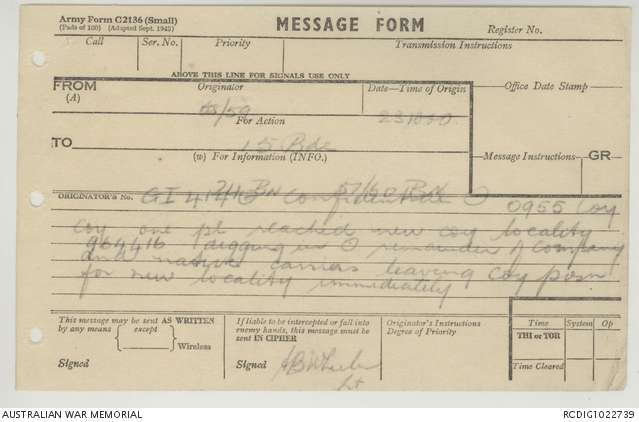 Army Form C2136 (Small)
(Pads of 100) (Adapted Sept. 1942)
MESSAGE FORM
Register No.
Call Ser. No. Priority Transmission Instructions
ABOVE THIS LINE FOR SIGNALS USE ONLY
FROM
(A)
Originator
Date—Time of Origin
Office Date Stamp
58/59
231010
For Action
TO
15 Bde
(w) For Information (INFO.)
Message Instructions GR
24 BN 57/60 Bn
ORIGINATOR'S No. GI 414 Confidential O 0955 coy
coy one pl reached new coy locality
964416 digging in O remainder of company
and native carriers leaving coy posn
for new locality immediately
This message may be sent AS WRITTEN
by any means except
Wireless
Signed
If liable to be intercepted or fall into
enemy hands, this message must be
sent IN CIPHER
Signed Wheeler
Lt
Originator's Instructions
Degree of Priority
Time System Op
THI or TOR
Time Cleared
AUSTRALIAN WAR MEMORIAL
RCDIG1022739